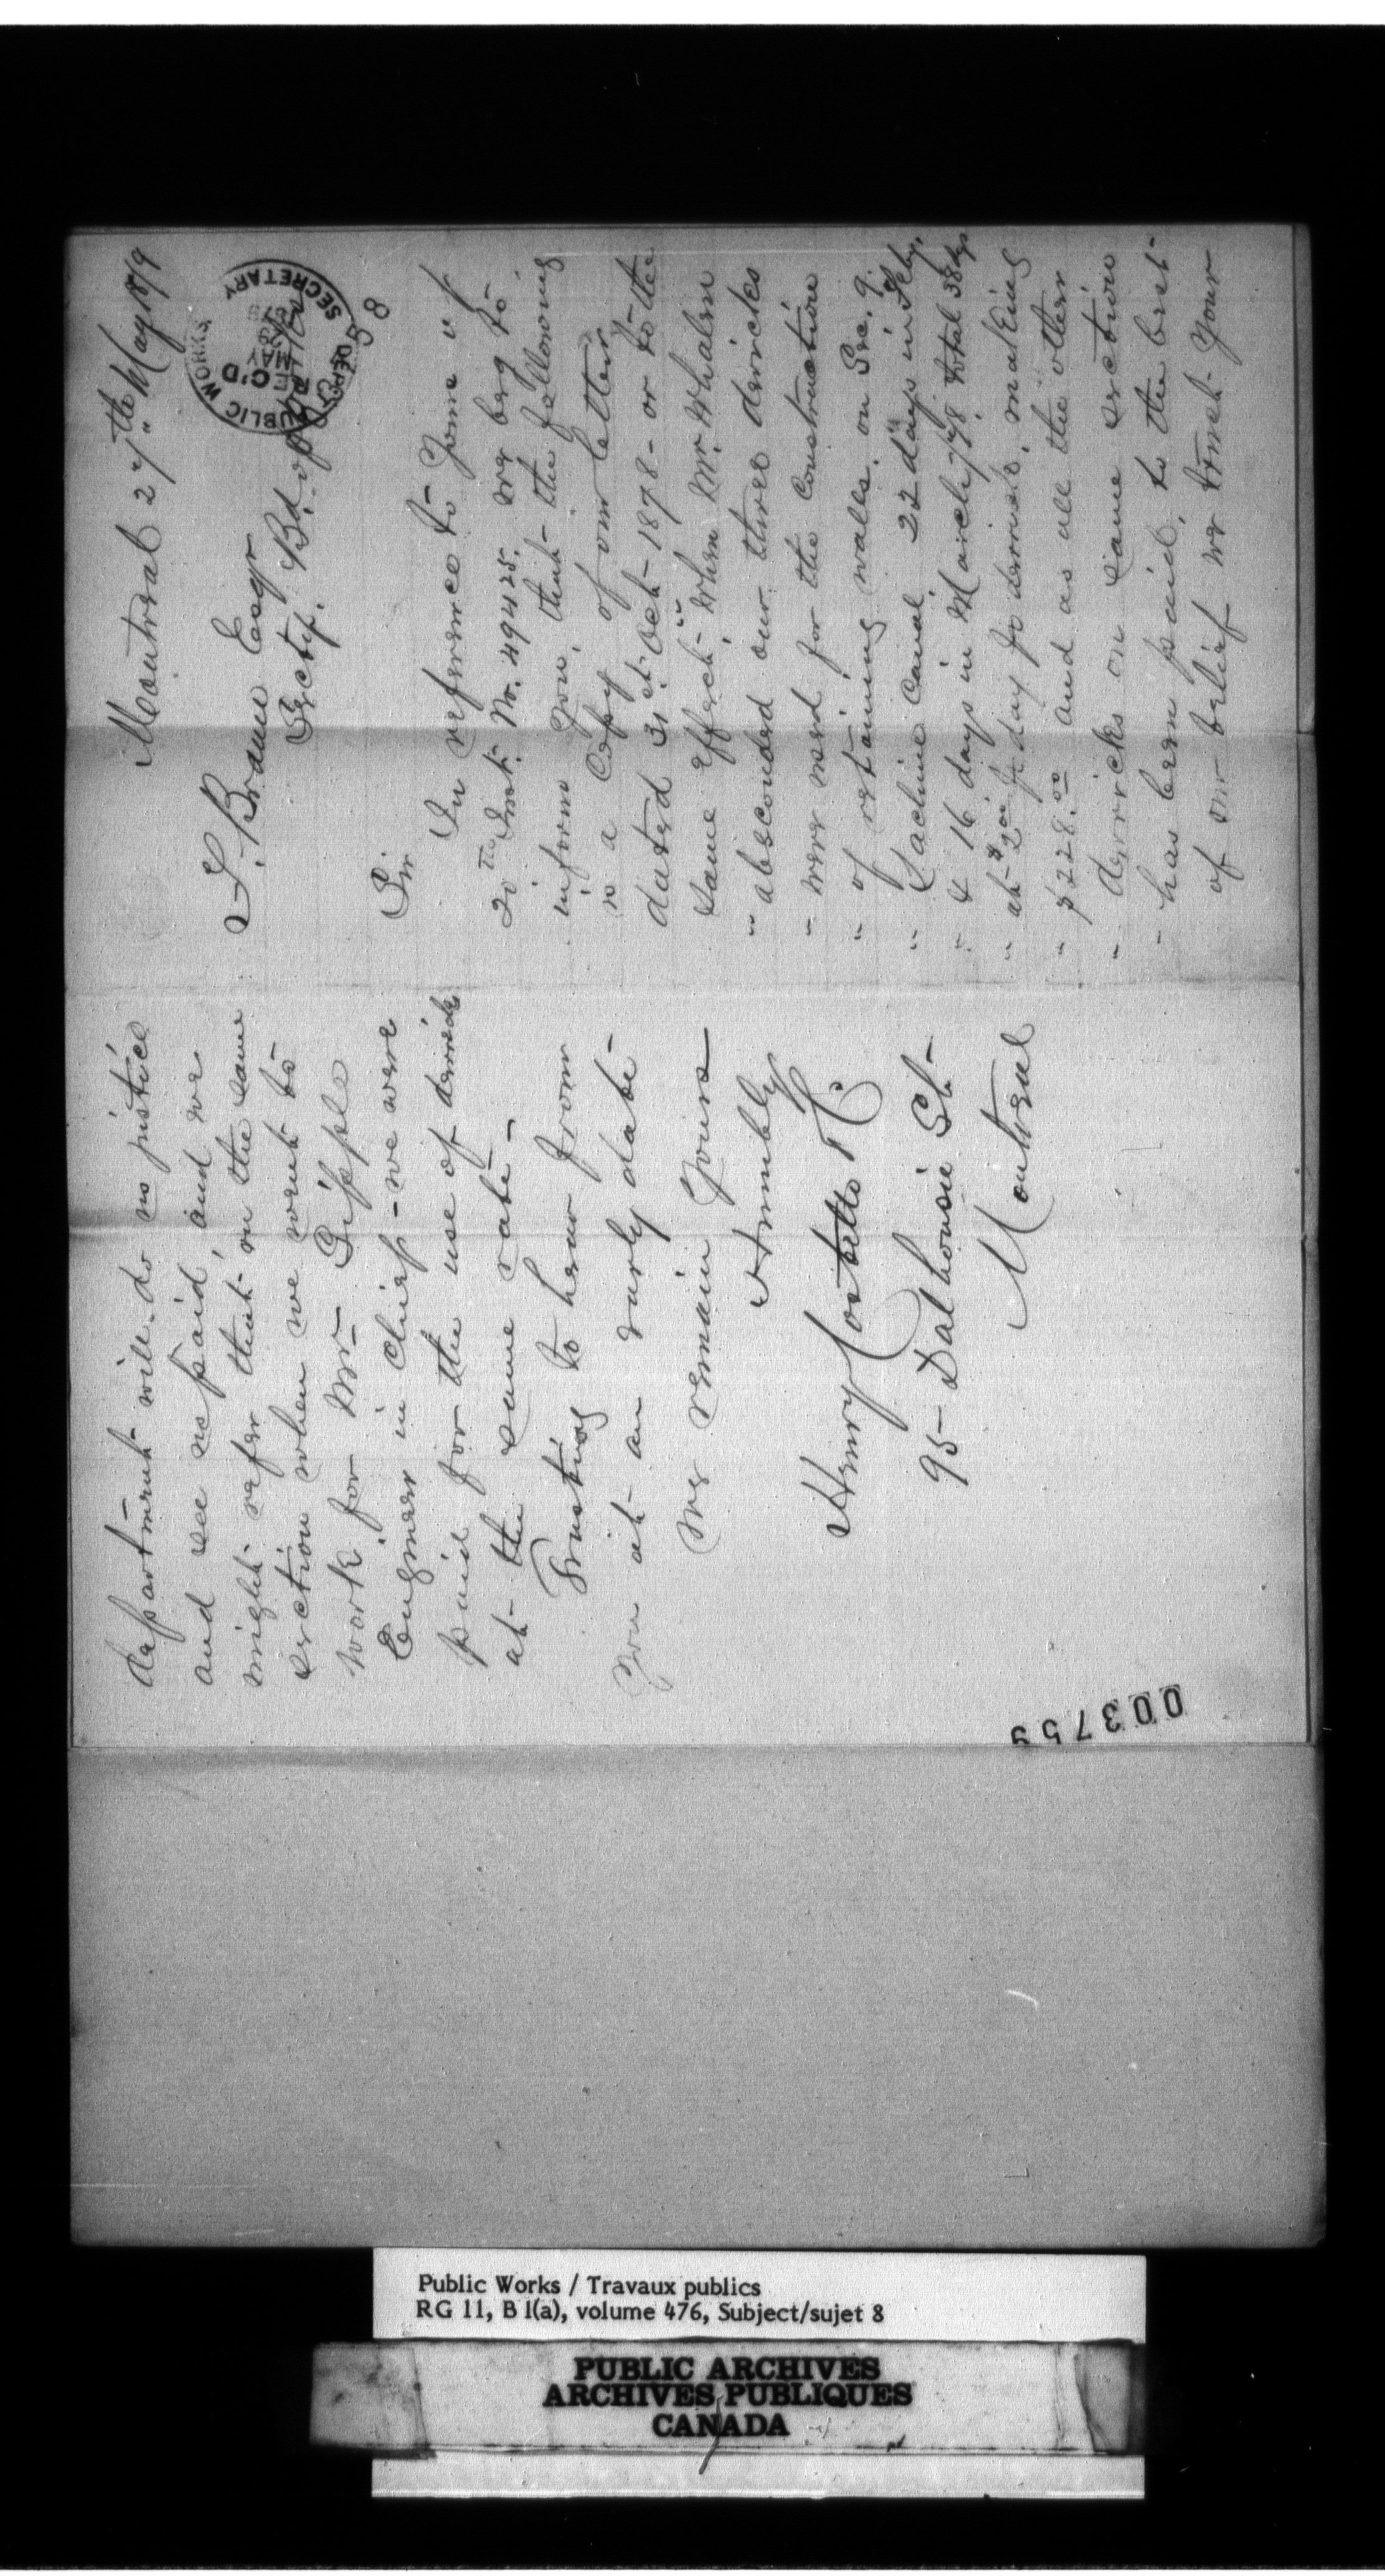 Montreal 27th May 1879
F. Braun Esqr
Secty. Bd. of
PUBLIC WORKS
REC'D
MAY
SECRETARY
58
Sir
In reference to Yours of
20th Inst. No. 49425. we beg to
inform You, that the following
is a Copy of our letter
dated 31st Oct 1878 - or to the
same effect. "When Mr. Whalen
" absconded our three derricks
" were used for the Construction
" of retaining walls. on Sec. 9.
" Lachine Canal. 22 days in Feby.
" & 16 days in March/78 total 38 dys
" at $2.00 p day p derrick, making
" $228.00 and as all the other
" derricks on same section
" has been paid, to the best
of our belief we trust Your
department will do us justice
and see us paid, and we
might refer that on the same
section when we went to
work for Mr Sippell
Engineer in Chief - we were
paid for the use of derricks
at the same rate -
Trusting to hear from
You at an early date -
We remain Yours
Humbly
Henry Costello
95 - Dalhousie St -
Montreal
003759
Public Works / Travaux publics
RG 11, B 1(a), volume 476, Subject/sujet 8
PUBLIC ARCHIVES
ARCHIVES PUBLIQUES
CANADA